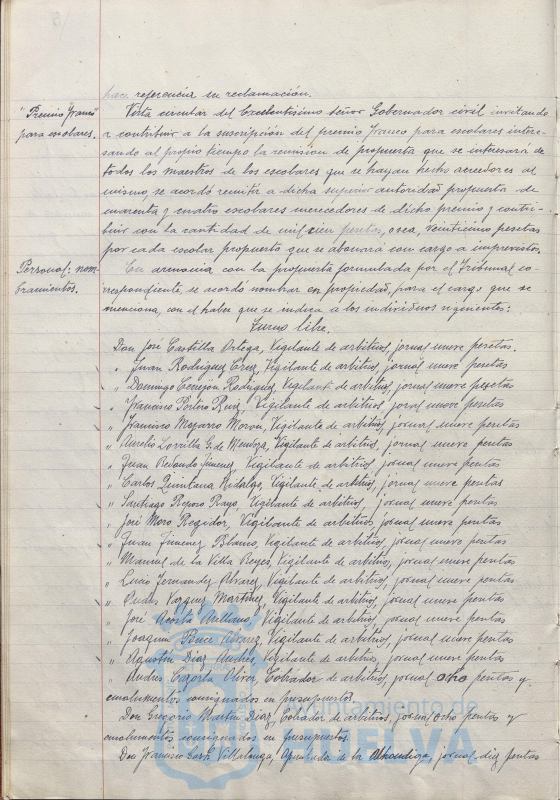 hace referencia su reclamación.
"Premio Franco" para escolares.
Vista circular del Excelentísimo señor Gobernador civil invitando
a contribuir a la suscripción del premio Franco para escolares intere-
sando al propio tiempo la remisión de propuesta que se interesará de
todos los maestros de los escolares que se hayan hecho acreedores al
mismo, se acordó remitir a dicha superior autoridad propuesta de
cuarenta y cuatro escolares merecedores de dicho premio y contri-
buir con la cantidad de mil cien pesetas, osea, veinticinco pesetas
por cada escolar propuesto que se abonará con cargo a imprevistos.
Personal: nom-
bramientos.
En armonía con la propuesta formulada por el Tribunal co-
rrespondiente, se acordó nombrar en propiedad, para el cargo que se
menciona, con el haber que se indica a los individuos siguientes:
Turno libre.
Don José Castilla Ortega, Vigilante de arbitrios, jornal nueve pesetas.
" Juan Rodríguez Cruz, Vigilante de arbitrios, jornal nueve pesetas
" Domingo Rodríguez, Vigilante de arbitrios, jornal nueve pesetas
" Francisco Ruiz, Vigilante de arbitrios, jornal nueve pesetas
" Francisco Mozarro Moron, Vigilante de arbitrios, jornal nueve pesetas
" Aurelio G. de Mendoza, Vigilante de arbitrios, jornal nueve pesetas
" Juan Redondo Jimenez, Vigilante de arbitrios, jornal nueve pesetas
" Carlos Quintana Hidalgo, Vigilante de arbitrios, jornal nueve pesetas
" Santiago Rayo, Vigilante de arbitrios, jornal nueve pesetas
" José Moro Regidor, Vigilante de arbitrios, jornal nueve pesetas
" Juan Jimenez Blanco, Vigilante de arbitrios, jornal nueve pesetas
" Manuel de la Villa Reyes, Vigilante de arbitrios, jornal nueve pesetas
" Lucio Fernandez Alvarez, Vigilante de arbitrios, jornal nueve pesetas
" Vazquez Martínez, Vigilante de arbitrios, jornal nueve pesetas
" José Acosta Arellano, Vigilante de arbitrios, jornal nueve pesetas
" Joaquin Ponce Alvarez, Vigilante de arbitrios, jornal nueve pesetas
" Agustin Diaz Andrés, Vigilante de arbitrios, jornal nueve pesetas
" Andres Cazorla, Cobrador de arbitrios, jornal ocho pesetas y
emolumentos consignados en presupuestos.
Don Gregorio Martin Diaz, Cobrador de arbitrios, jornal ocho pesetas y
emolumentos consignados en presupuestos.
Don Francisco Villalonga, de la Alhondiga, jornal diez pesetas
Ayuntamiento de
HUELVA